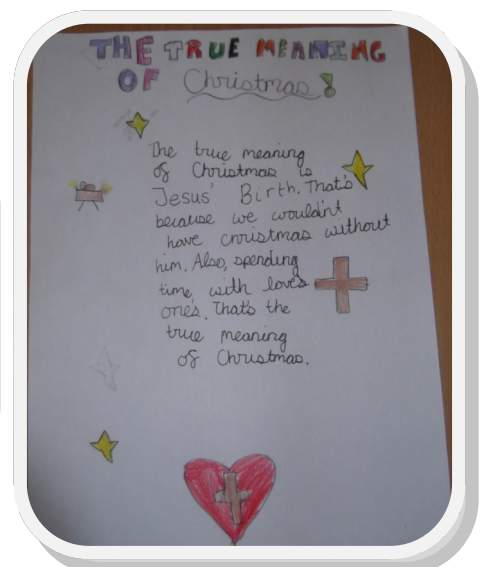 THE TRUE MEANING
OF Christmas!
The true meaning
of Christmas is
Jesus' Birth. That's
because we wouldn't
have christmas without
him. Also, spending
time, with loves
one's. That's the
true meaning
of Christmas.